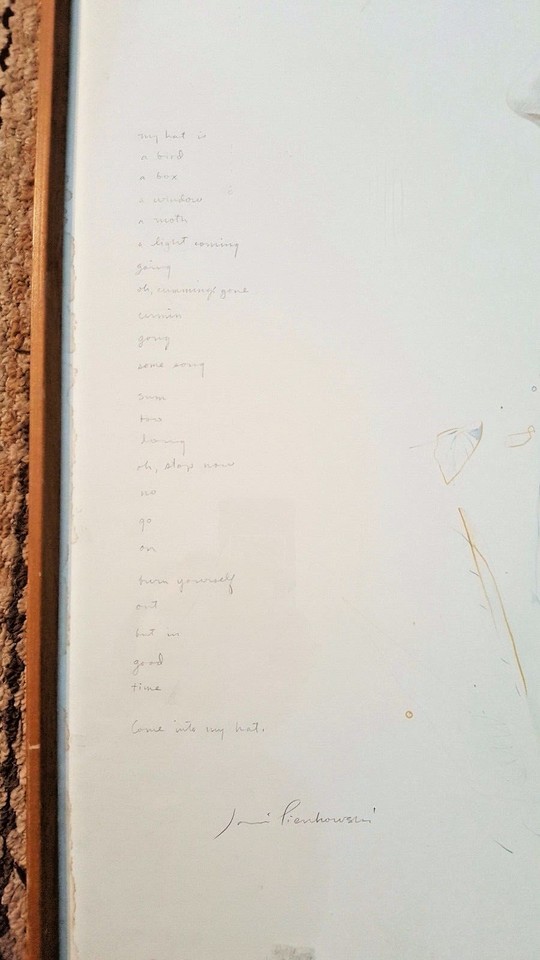 my hat is
a bird
a box
a window
a moth
a light coming
going
oh, cummings gone
cumin
gong
some song
sum
tow
oh, stop now
no
go
on
turn yourself
out
but in
good
time
Come into my hat.
Pienkowski